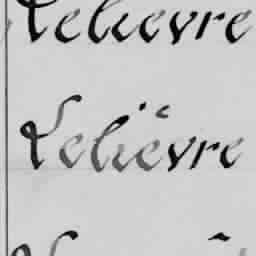 Lelievre
Lelièvre